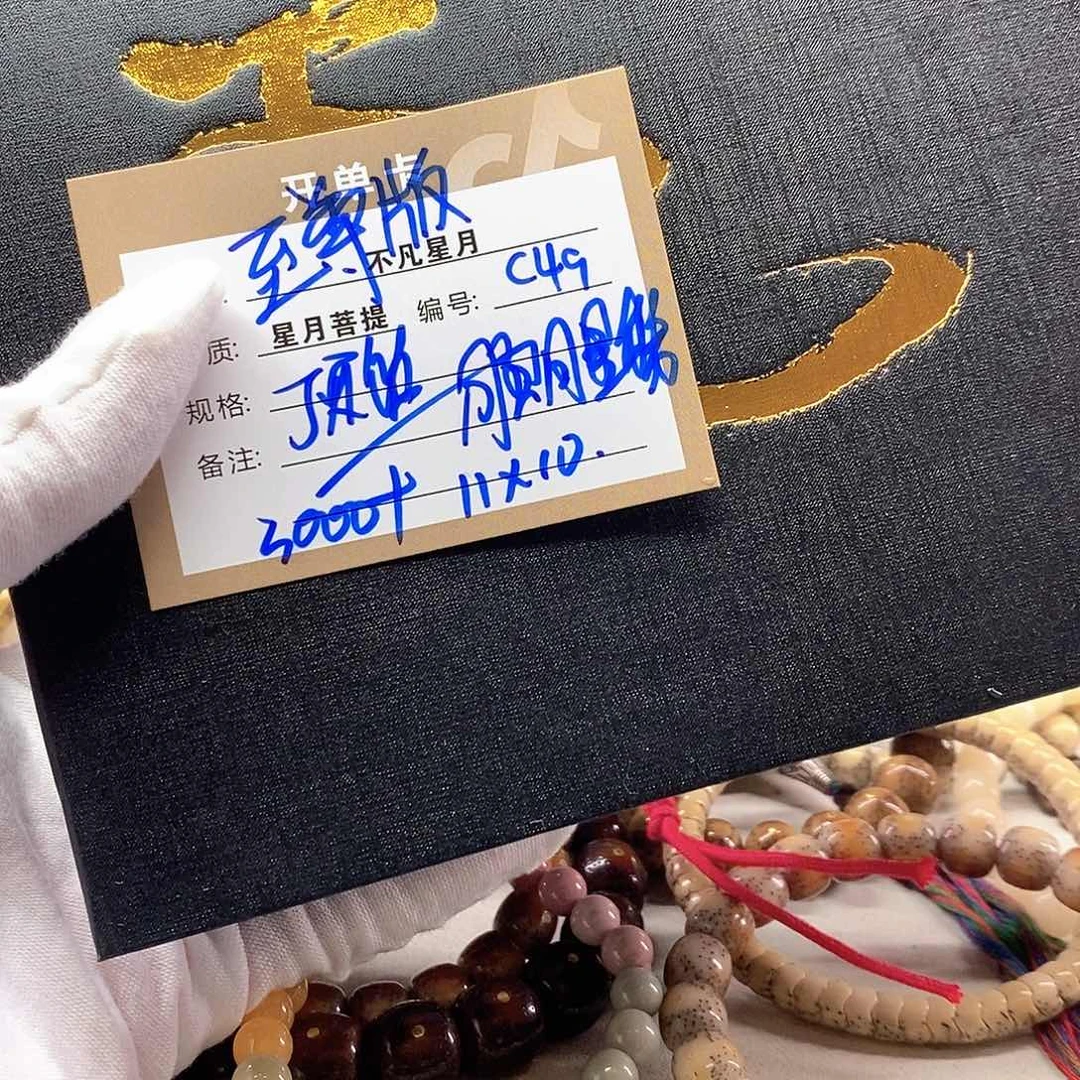 开单卡
至尊版
不凡星月
质: 星月菩提 编号: C49
规格: 顶级
备注:
3000+ 11×10.